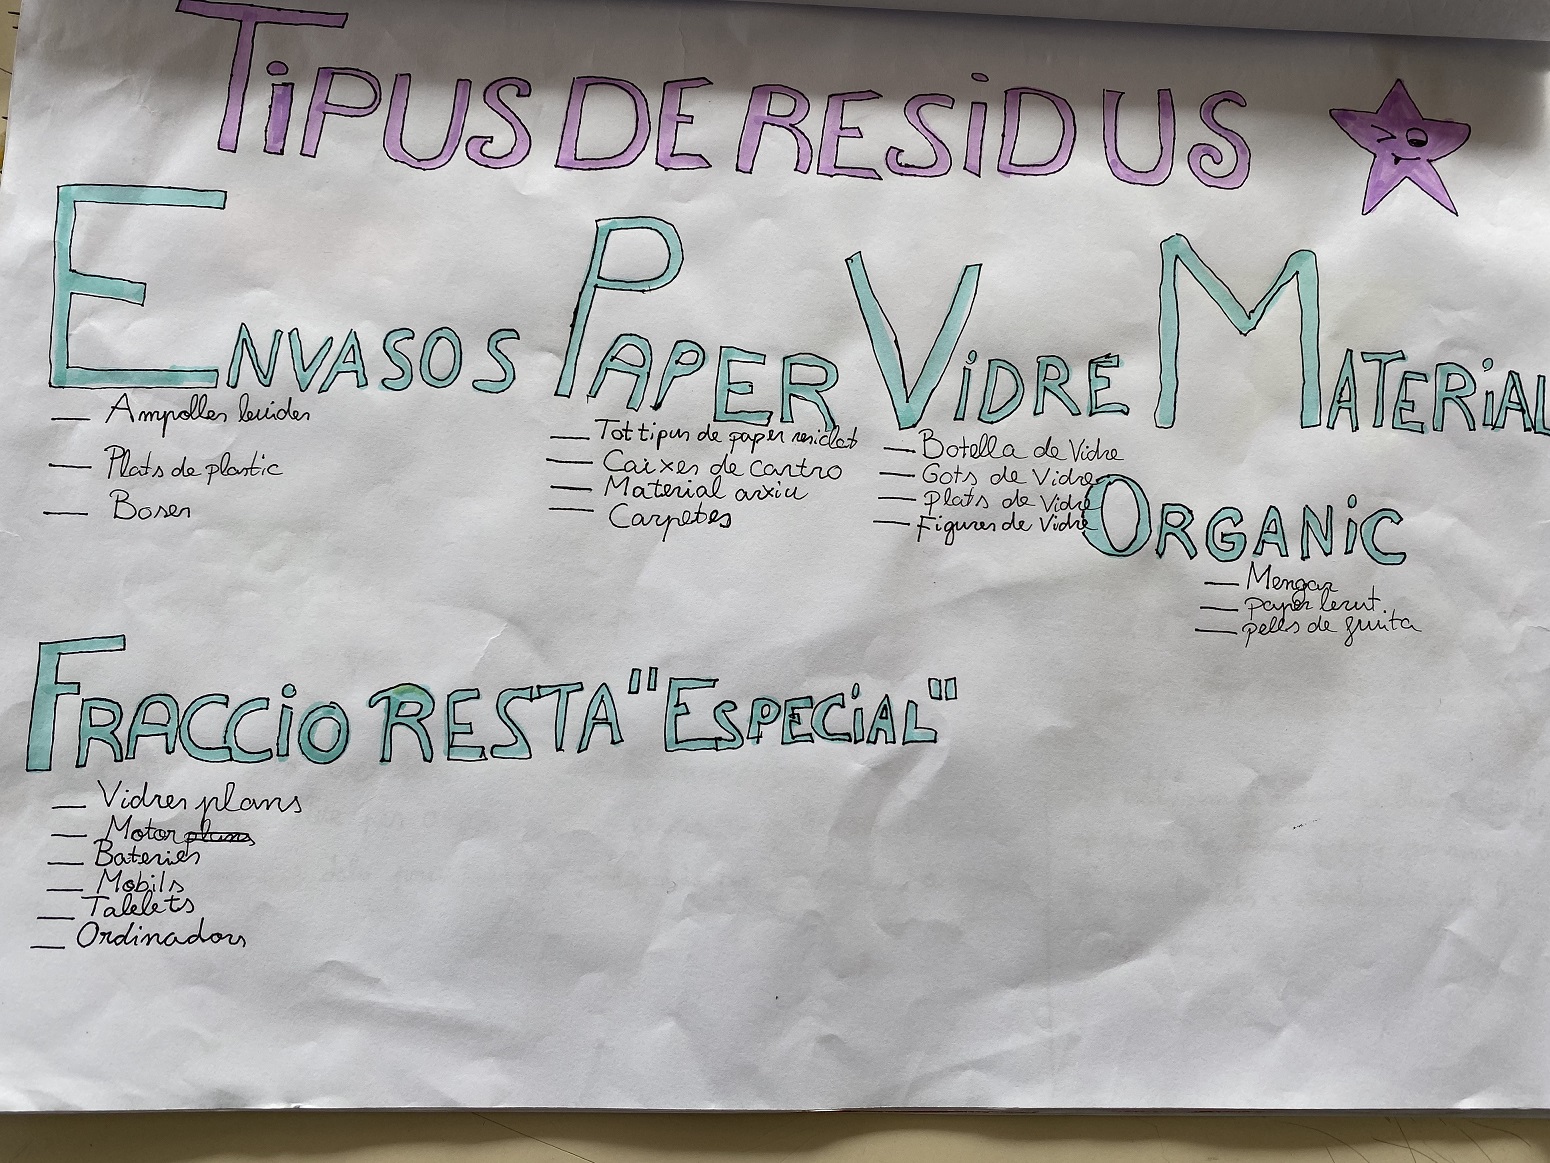 TiPUS DE RESiDUS
ENVASOS
— Ampolles buides
— Plats de plastic
— Bosses
PAPER
— Tot tipus de paper reciclat
— Caixes de cartro
— Material arxiu
— Carpetes
ViDRE
— Botella de Vidre
— Gots de Vidre
— Plats de Vidre
— Figures de Vidre
MATERiAL
ORGANiC
— Menjar
— paper brut
— pells de fruita
FRACCiO RESTA "ESPECiAL"
— Vidres plans
— Motor
— Bateries
— Mobils
— Tablets
— Ordinadors